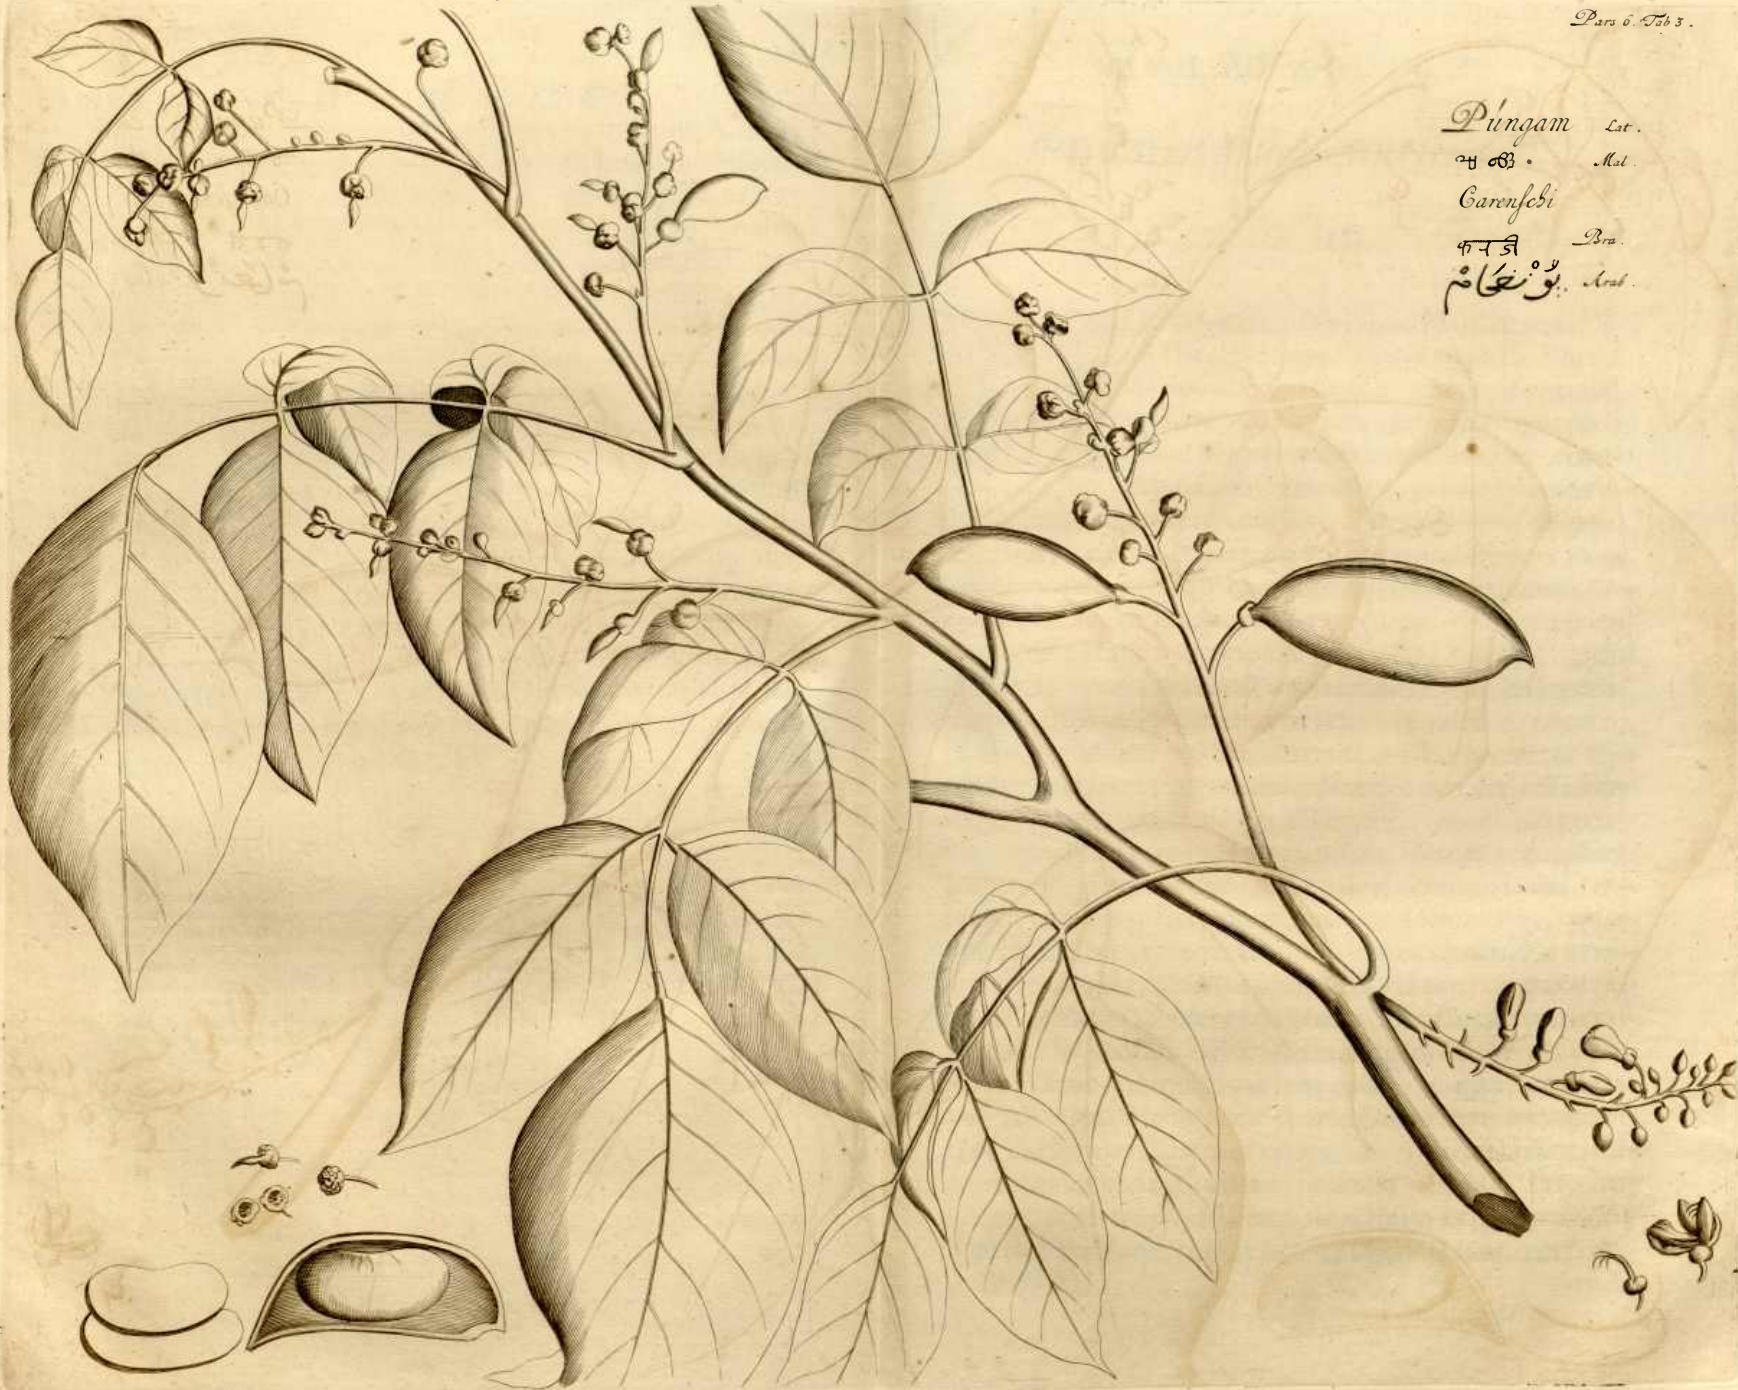 Pars 6. Tab 3.
Púngam Lat.
Mal.
Carenschi
करजी Bra.
Arab.